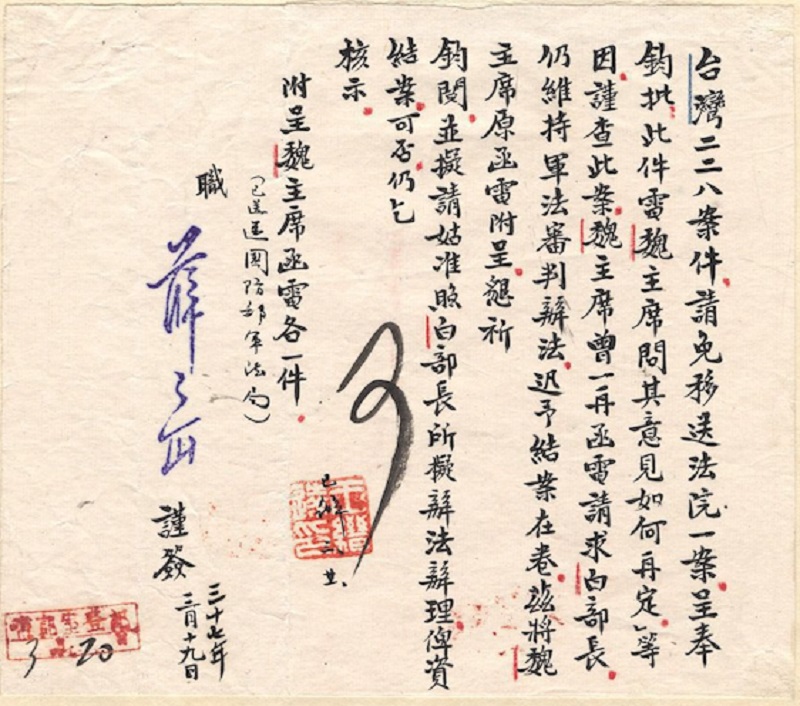 台灣二二八案件請免移送法院一案呈奉
鈞批此件電魏主席問其意見如何再定等
因謹查此案魏主席曾一再函電請求白部長
仍維持軍法審判辦法迅予結案在卷茲將魏
主席原函電附呈懇祈
鈞閱並擬請姑准照白部長所擬辦法辦理俾資
結案可否仍乞
核示
附呈魏主席函電各一件
(已送還國防部軍法局)
職
薛岳
謹簽
三十七年
三月十九日
可
3 20